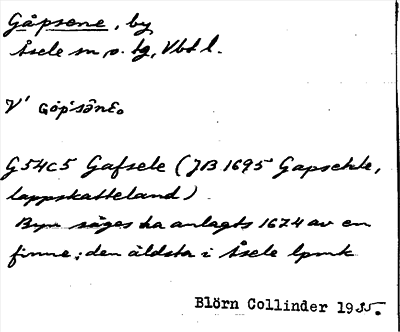 Gåpsene, by
Åsele sn, s. tg, Vbd l.
V' Gåp'sȧnɛ.
G54c5 Gafsele (JB 1695 Gapsehle,
lappskatteland)
Byn säges ha anlagts 1674 av en
finne; den äldsta i Åsele lpmk
Blörn Collinder 1935.